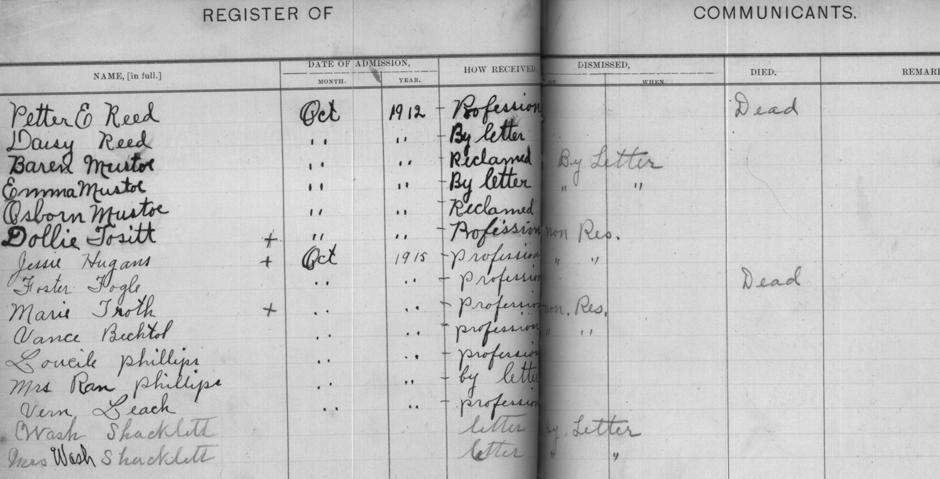 REGISTER OF COMMUNICANTS.
NAME, [in full.] DATE OF ADMISSION, HOW RECEIVED DISMISSED, DIED. REMAR
MONTH. YEAR. WHEN.
Petter E Reed Oct 1912 - Profession Dead
Daisy Reed " " By letter
Baren Mustoe " " Reclaimed By Letter
Emma Mustoe " " By letter " "
Osborn Mustoe " " Reclaimed
Dollie Tositt + " " - Profession non Res.
Jessie Hugans + Oct 1915 - profession " "
Foster Fogle " " - profession Dead
Marie Troth + " " - profession non. Res.
Vance Bechtol " " - profession " "
Loucile phillips " " - profession
Mrs Ran phillips " " - by lette
Vern Leach " " - profession
Wash Shacklett letter By. Letter
Mrs Wash Shacklett letter " "